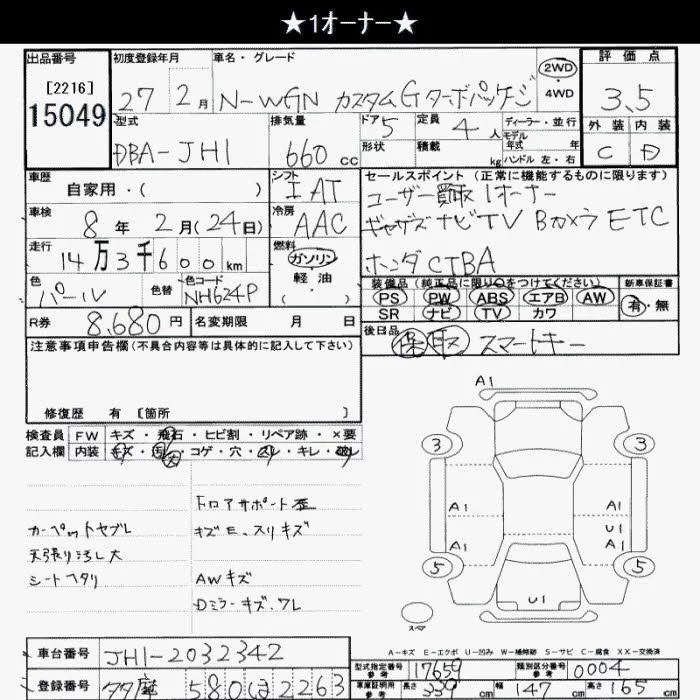 ★1オーナー★
出品番号
[2216]
15049
初度登録年月
27 2月
車名・グレード
N-WGN カスタムGターボパッケージ
2WD
・
4WD
評価点
3.5
外装 内装
C D
型式
DBA-JH1
排気量
660 cc
ドア 5
形状
定員 4 人
積載 kg
ディーラー・並行
モデル
年式 年
ハンドル 左・右
車歴
自家用・( )
シフト
IAT
車検
8年 2月(24日)
冷房
AAC
走行
14万3千600km
燃料
ガソリン
・
軽油
( )
色
パール
色替
色コード
NH624P
R券 8,680円
名変期限 月 日
セールスポイント(正常に機能するものに限ります)
ユーザー買取 1オーナー
ギャザズナビTV Bカメラ ETC
ホンダCTBA
装備品(純正品に限り○をつけてください)
PS PW ABS エアB AW
SR ナビ TV カワ
新車保証書
有・無
後日品
保 取 スマートキー
注意事項申告欄(不具合内容等は具体的に記入して下さい)
修復歴 有 [箇所 ]
検査員
記入欄
FW キズ・飛石・ヒビ割・リペア跡・×要
内装 キズ・汚・コゲ・穴・スレ・キレ・破レ
ドロアサポート歪
カーペットヤブレ キズE、スリキズ
天張り汚レ大
シートヘタリ AWキズ
Dミラーキズ、ワレ
A1
3 3
A1 A1
U1
A1 A1
5 5
U1
スペア
A-キズ E-エクボ U-凹み W-補修跡 S-サビ C-腐食 XX-交換済
車台番号 JH1-2032342
登録番号 多摩 580 ほ 2263
型式指定番号
参考
17659
類別区分番号
参考
0004
車庫証明用
参考
長さ 339 cm
幅 147 cm
高さ 165 cm